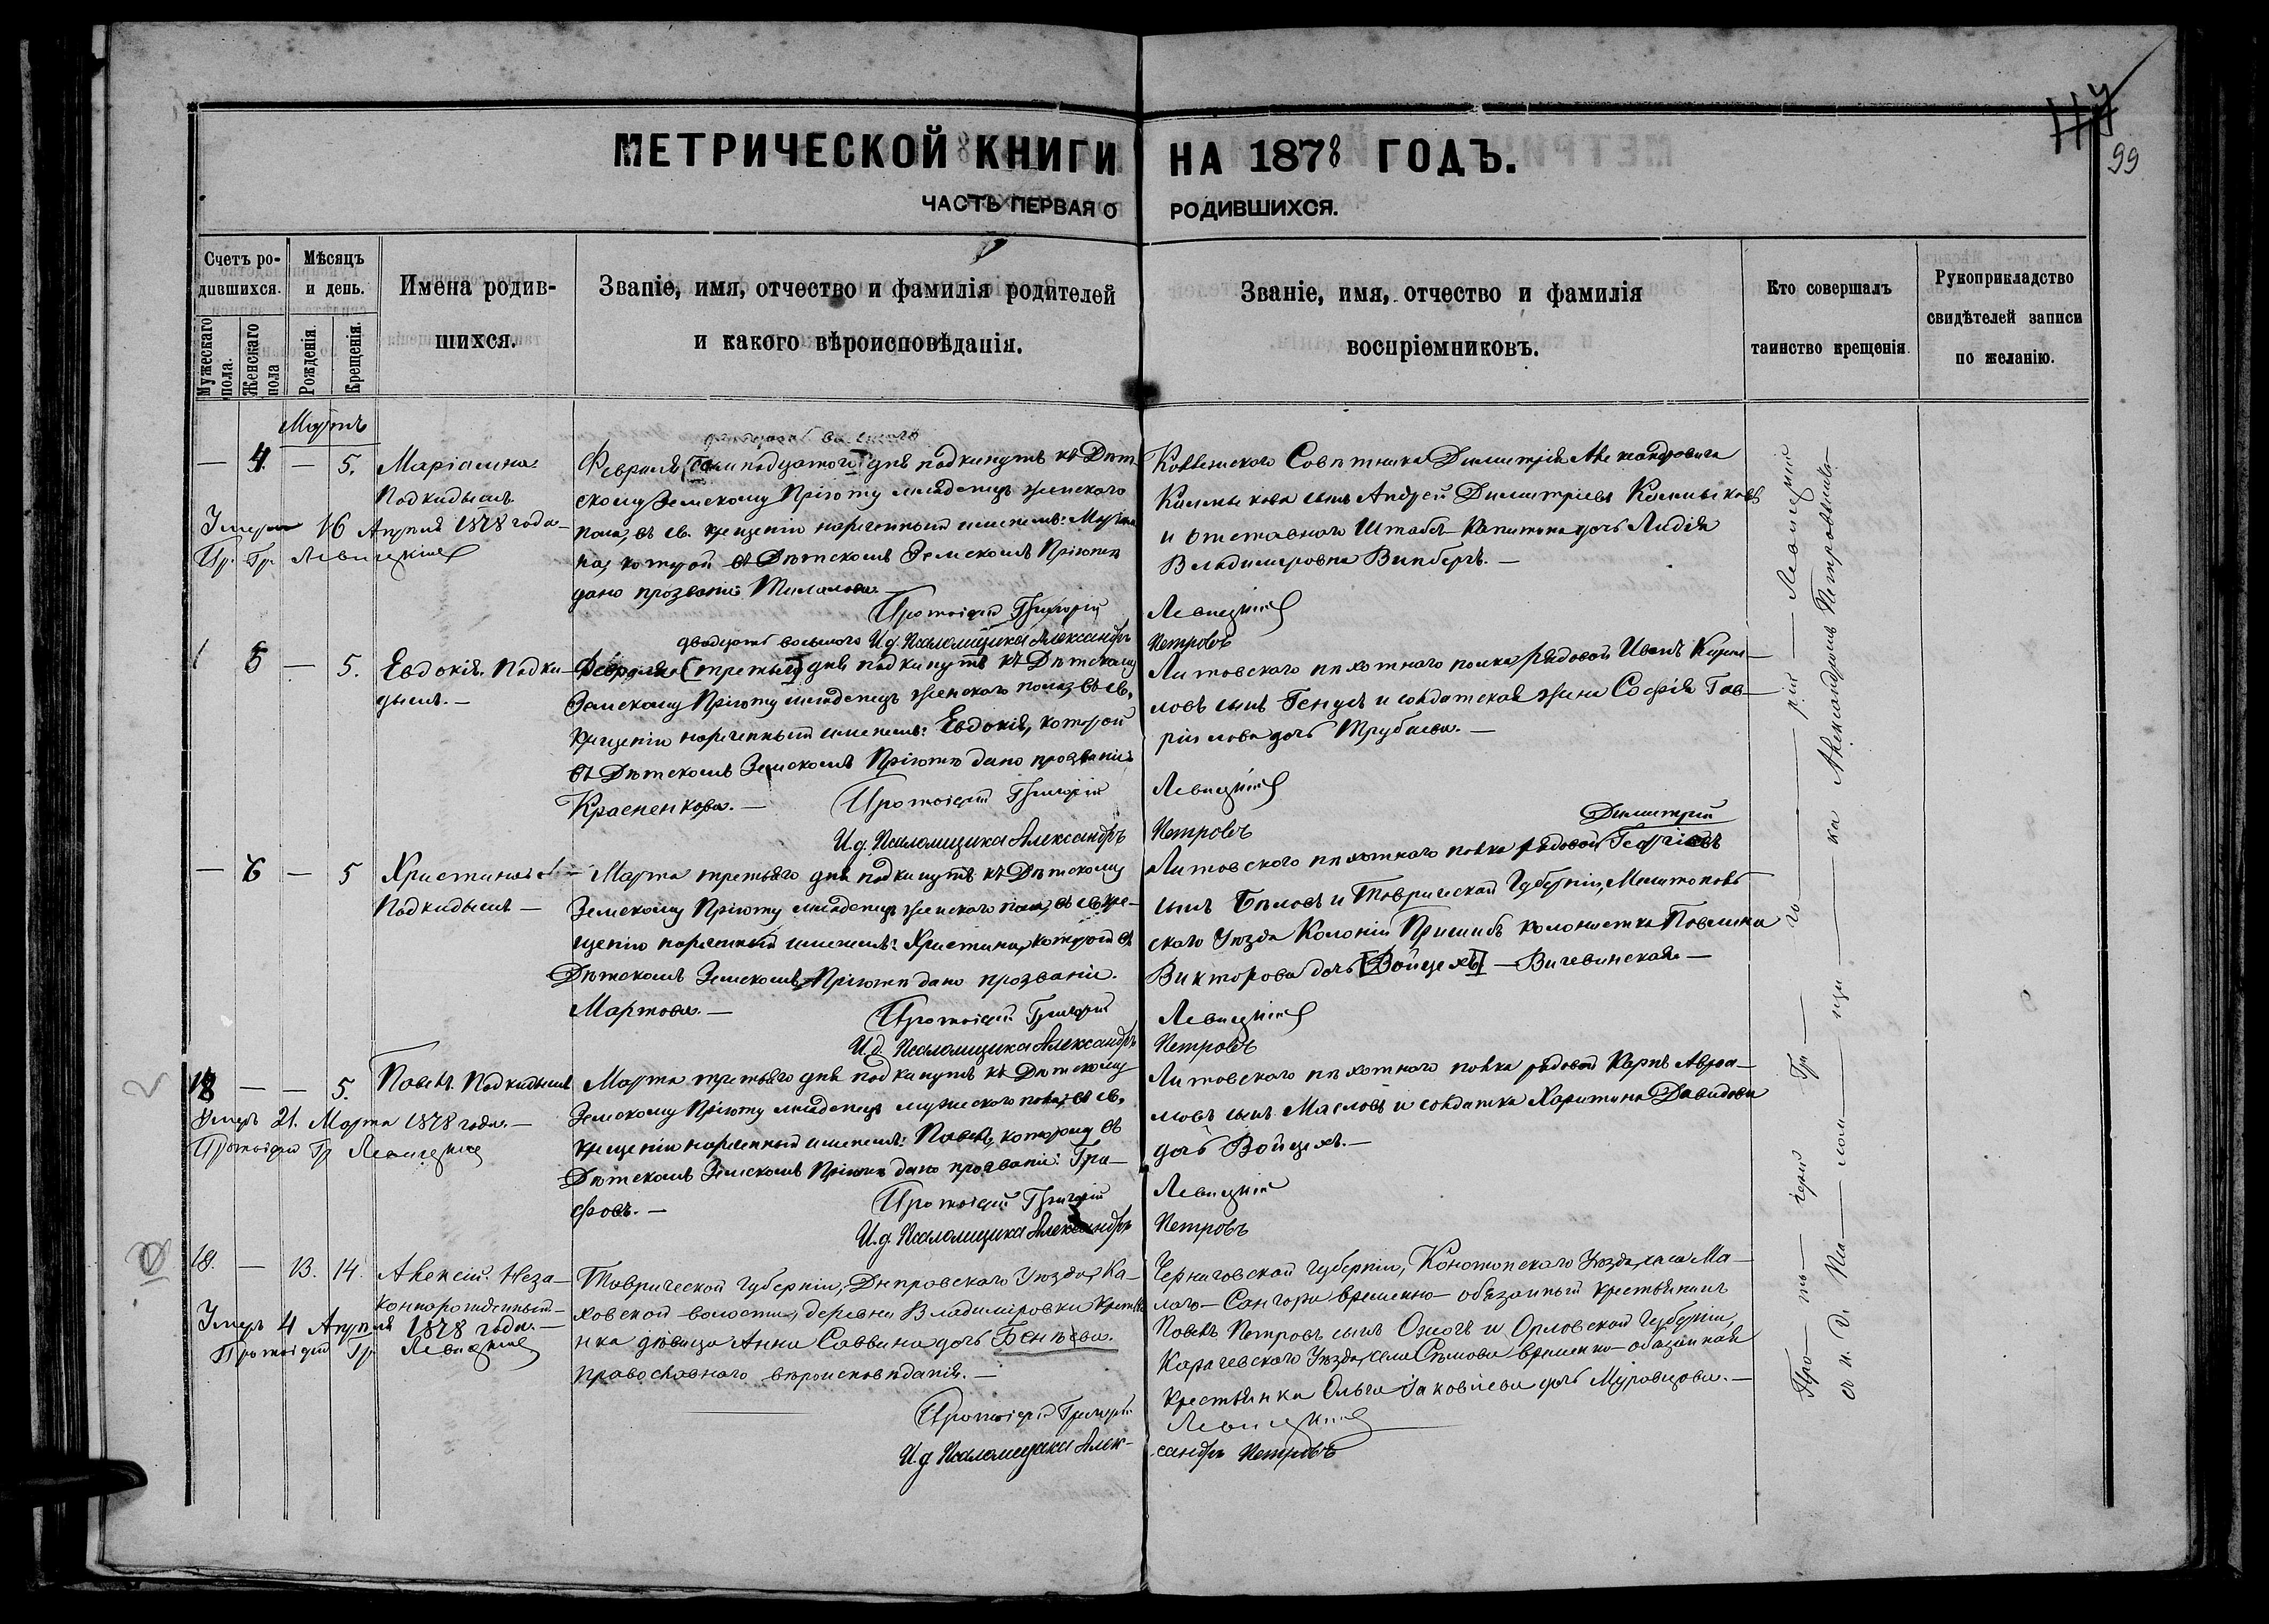 99
МЕТРИЧЕСКОЙ КНИГИ НА 1878 ГОДЪ.
ЧАСТЬ ПЕРВАЯ О РОДИВШИХСЯ.
Счетъ родившихся.
Мужескаго пола.
Женскаго пола
Мѣсяцъ и день.
Рожденія.
Крещенія.
Имена родив-
шихся.
Званіе, имя, отчество и фамилія родителей
и какого вѣроисповѣданія.
Званіе, имя, отчество и фамилія
воспріемниковъ.
Кто совершалъ
таинство крещенія.
Рукоприкладство
свидѣтелей записи
по желанію.
Мартъ
— 4. — 5.
Подкидышъ
16 Апрѣля 1878 года
Февраля дня подкинутъ къ Дѣт-
скому Земскому Пріюту младенецъ женскаго
пола, въ св. крещеніи нареченный именемъ:
на, которой въ Дѣтскомъ Земскомъ Пріютѣ
дано прозваніе
Протоіерей Григорій
Левицкій
И.д. Псаломщика Александръ
Петровъ
Совѣтника Димитрія Александровича
сынъ Андрей Димитріевъ
и отставнаго Штабсъ-Капитана дочь Лидія
Владимировна Винбергъ. —
5 — 5.
Евдокія. Подки-
дышъ. —
двадцать восьмого
Февраля [третьяго] дня подкинутъ къ Дѣтскому
Земскому Пріюту младенецъ женскаго пола, въ св.
крещеніи нареченный именемъ: Евдокія, которой
въ Дѣтскомъ Земскомъ Пріютѣ дано прозваніе
Красненкова. —
Протоіерей Григорій
Левицкій
И.д. Псаломщика Александръ
Петровъ
Литовскаго пѣхотнаго полка рядовой Иванъ Кирил-
ловъ сынъ и солдатская жена Софія Гав-
рилова дочь Трубаева. —
— 6 — 5
Христина
Подкидышъ —
Марта третьяго дня подкинутъ къ Дѣтскому
Земскому Пріюту младенецъ женскаго пола, въ св. кре-
щеніи нареченный именемъ: Христина, которой въ
Дѣтскомъ Земскомъ Пріютѣ дано прозваніе
Мартова. —
Протоіерей Григорій
Левицкій
И.д. Псаломщика Александръ
Петровъ
Димитрій
Литовскаго пѣхотнаго полка рядовой Георгіевъ
сынъ Бѣловъ и Таврической Губерніи, Мелитополь-
скаго Уѣзда Колоніи Пришибъ колонистка Павлина
Викторова дочь [Войцехъ] — Вичевинская —
— — 5.
Павелъ. Подкидышъ
Умеръ 21. Марта 1878 года. —
Протоіерей Гр Левицкій
Марта третьяго дня подкинутъ къ Дѣтскому
Земскому Пріюту младенецъ мужескаго пола, въ св.
крещеніи нареченный именемъ: Павелъ, которому въ
Дѣтскомъ Земскомъ Пріютѣ дано прозваніе: Гра-
фовъ. —
Протоіерей Григорій
Левицкій
И.д. Псаломщика Александръ
Петровъ
Литовскаго пѣхотнаго полка рядовой Карпъ Авраа-
мовъ сынъ Масловъ и солдатка Харитина Давидова
дочь Войцехъ. —
18. — 13. 14.
Алексій. Неза-
коннорожденный —
Умеръ 4 Апрѣля 1878 года. —
Протоіерей Гр. Левицкій
Таврической Губерніи, Днѣпровскаго Уѣзда, Ка-
ховской волости, деревни Владиміровки крестья-
нка дѣвица Анна Саввина дочь Бенѣева.
православнаго вѣроисповѣданія. —
Протоіерей Григорій
Левицкій
И.д Псаломщика Алек-
сандръ Петровъ
Черниговской Губерніи, Конотопскаго Уѣзда, села Ма-
лаго — временно-обязанный крестьянинъ
Павелъ Петровъ сынъ и Орловской Губерніи,
Карачевскаго Уѣзда, села временно-обязанная
крестьянка Ольга Іаковлева дочь
Про — то — іерей — Гри — го — рій — Левицкій
съ и. д. Пса — лом — щи — ка Александромъ Петровымъ —